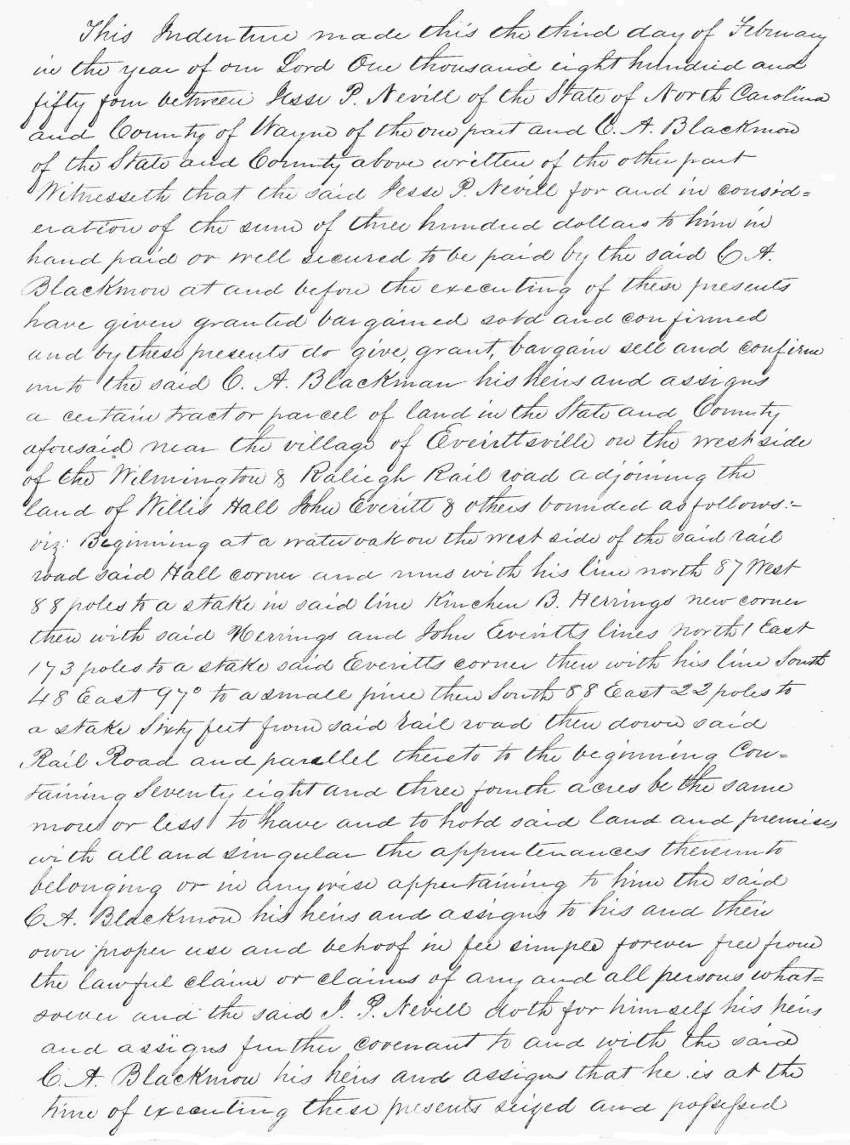 This Indenture made this the third day of February
in the year of our Lord One thousand eight hundred and
fifty four between Jesse P. Nevill of the State of North Carolina
and County of Wayne of the one part and C. A. Blackmon
of the State and County above written of the other part
Witnesseth that the said Jesse P. Nevill for and in consid=
eration of the sum of three hundred dollars to him in
hand paid or well secured to be paid by the said C. A.
Blackmon at and before the executing of these presents
have given granted bargained sold and confirmed
and by these presents do give, grant, bargain sell and confirm
unto the said C. A. Blackman his heirs and assigns
a certain tract or parcel of land in the State and County
aforesaid near the village of Everittsville on the west side
of the Wilmington & Raliegh Rail road adjoining the
land of Willis Hall John Everitt & others bounded as follows:-
viz: Beginning at a water oak on the west side of the said rail
road said Hall corner and runs with his line north 87 West
88 poles to a stake in said line Kinchen B. Herrings new corner
then with said Herrings and John Everitts lines north 1 East
173 poles to a stake said Everitts corner then with his line South
48 East 97° to a small pine then South 88 East 22 poles to
a stake Sixty feet from said rail road then down said
Rail Road and parallel thereto to the beginning Con=
taining Seventy eight and three fourth acres be the same
more or less to have and to hold said land and premises
with all and singular the appurtenances thereunto
belonging or in any wise appertaining to him the said
C. A. Blackmon his heirs and assigns to his and their
own proper use and behoof in fee simple forever free from
the lawful claim or claims of any and all persons what=
soever and the said J. P. Nevill doth for himself his heirs
and assigns further covenant to and with the said
C. A. Blackmon his heirs and assigns that he is at the
time of executing these presents seized and possessed